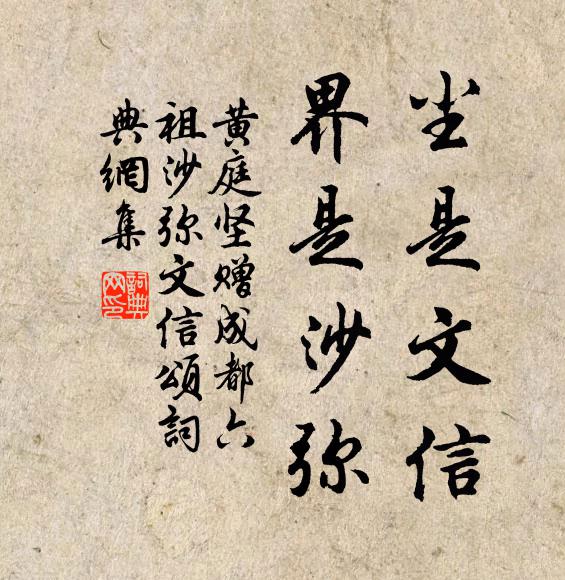 尘是文信
界是沙弥
黄庭坚赠成都六
祖沙弥文信颂词
典網集
詞典
网印